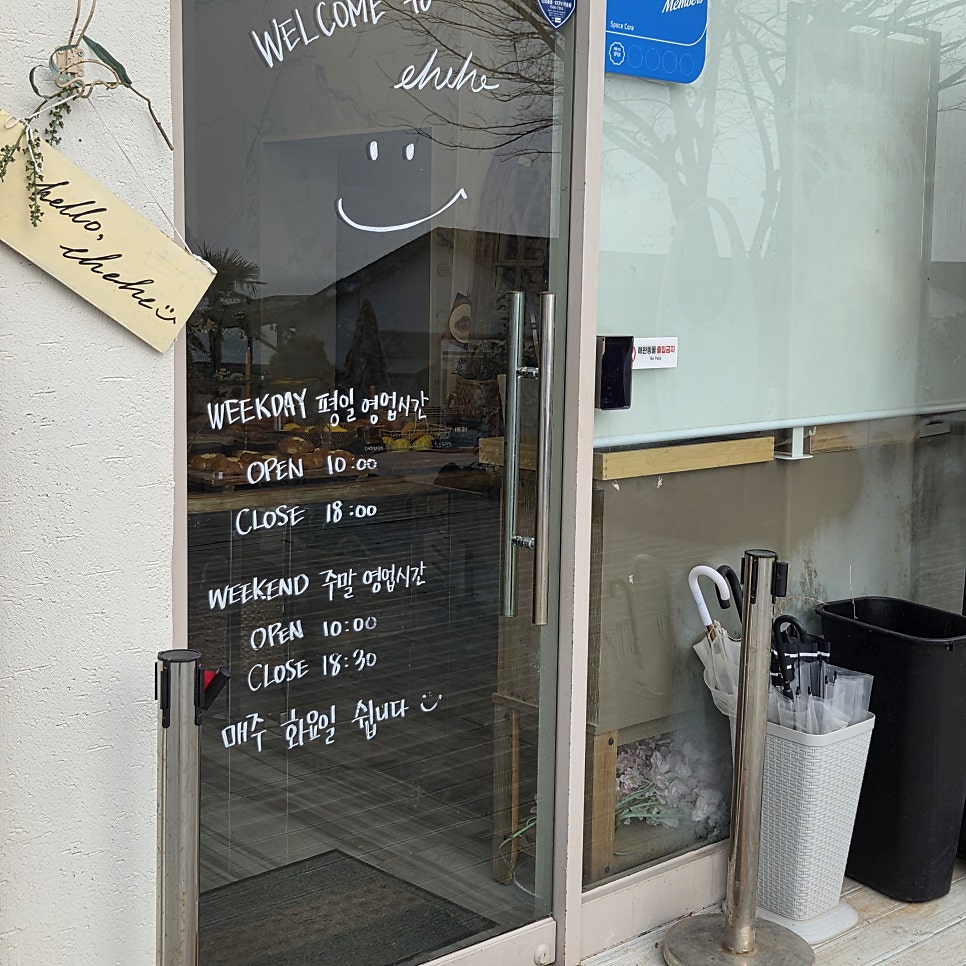 WELCOME to
ehehe
hello,
ehehe
WEEKDAY 평일 영업시간
OPEN 10:00
CLOSE 18:00
WEEKEND 주말 영업시간
OPEN 10:00
CLOSE 18:30
매주 화요일 쉽니다
Members
Space Care
애완동물 출입금지
No Pets